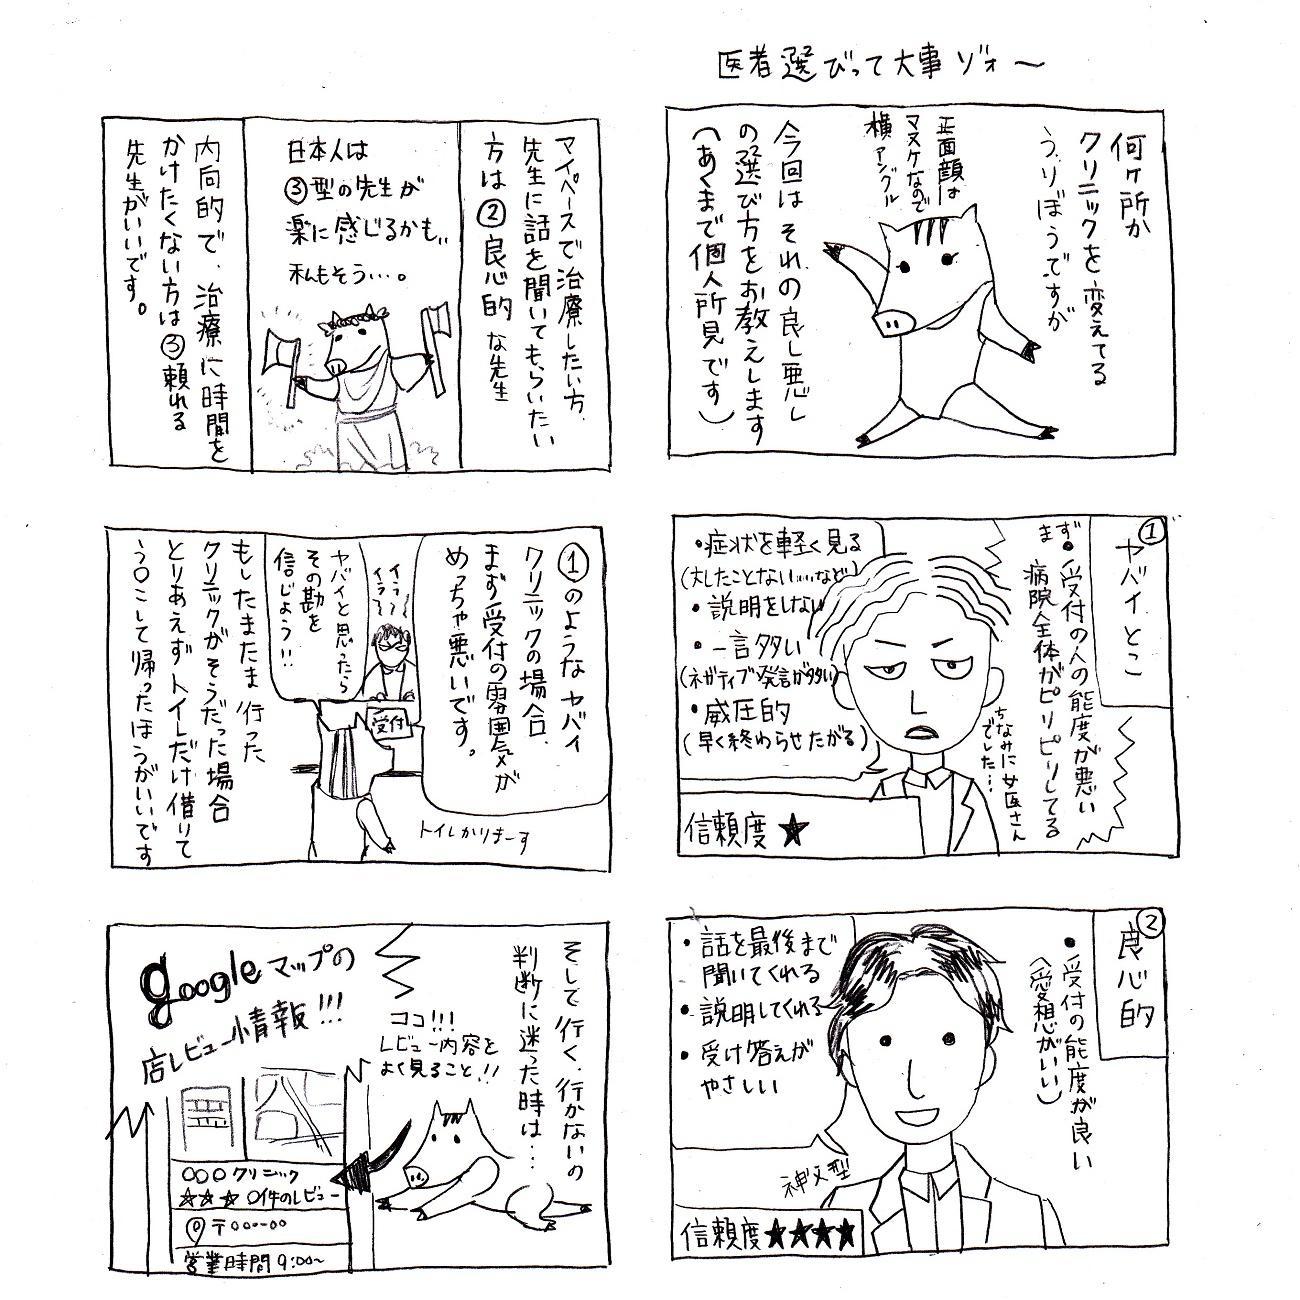 医者選びって大事ゾォ〜
何ヶ所か
クリニックを変えてる
うりぼうですが
正面顔は
マヌケなので
横アングル
今回はそれの良し悪し
の選び方をお教えします
(あくまで個人所見です)
①
ヤバイとこ
まず
・受付の人の態度が悪い
病院全体がピリピリしてる
ちなみに女医さん
でした…
・症状を軽く見る
(大したことない……など)
・説明をしない
・一言多い
(ネガティブ発言が多い)
・威圧的
(早く終わらせたがる)
信頼度★
②
良心的
・受付の態度が良い
(愛想がいい)
・話を最後まで
聞いてくれる
・説明してくれる
・受け答えが
やさしい
神父型
信頼度★★★★
マイペースで治療したい方、
先生に話を聞いてもらいたい
方は②良心的な先生
日本人は
③型の先生が
楽に感じるかも、、
私もそう…。
内向的で、治療に時間を
かけたくない方は③頼れる
先生がいいです。
①のようなヤバイ
クリニックの場合、
まず受付の雰囲気が
めっちゃ悪いです。
イラ〜
イラ〜
受付
ヤバイと思ったら
その勘を
信じよう!!
トイレかりまーす
もしたまたま行った
クリニックがそうだった場合
とりあえずトイレだけ借りて
う○こして帰ったほうがいいです
そして行く、行かないの
判断に迷った時は…
ココ!!!
レビュー内容を
よく見ること!!
googleマップの
店レビュー情報!!!
○○○クリニック
★★★ ○件のレビュー
〒○○○-○○
営業時間 9:00~